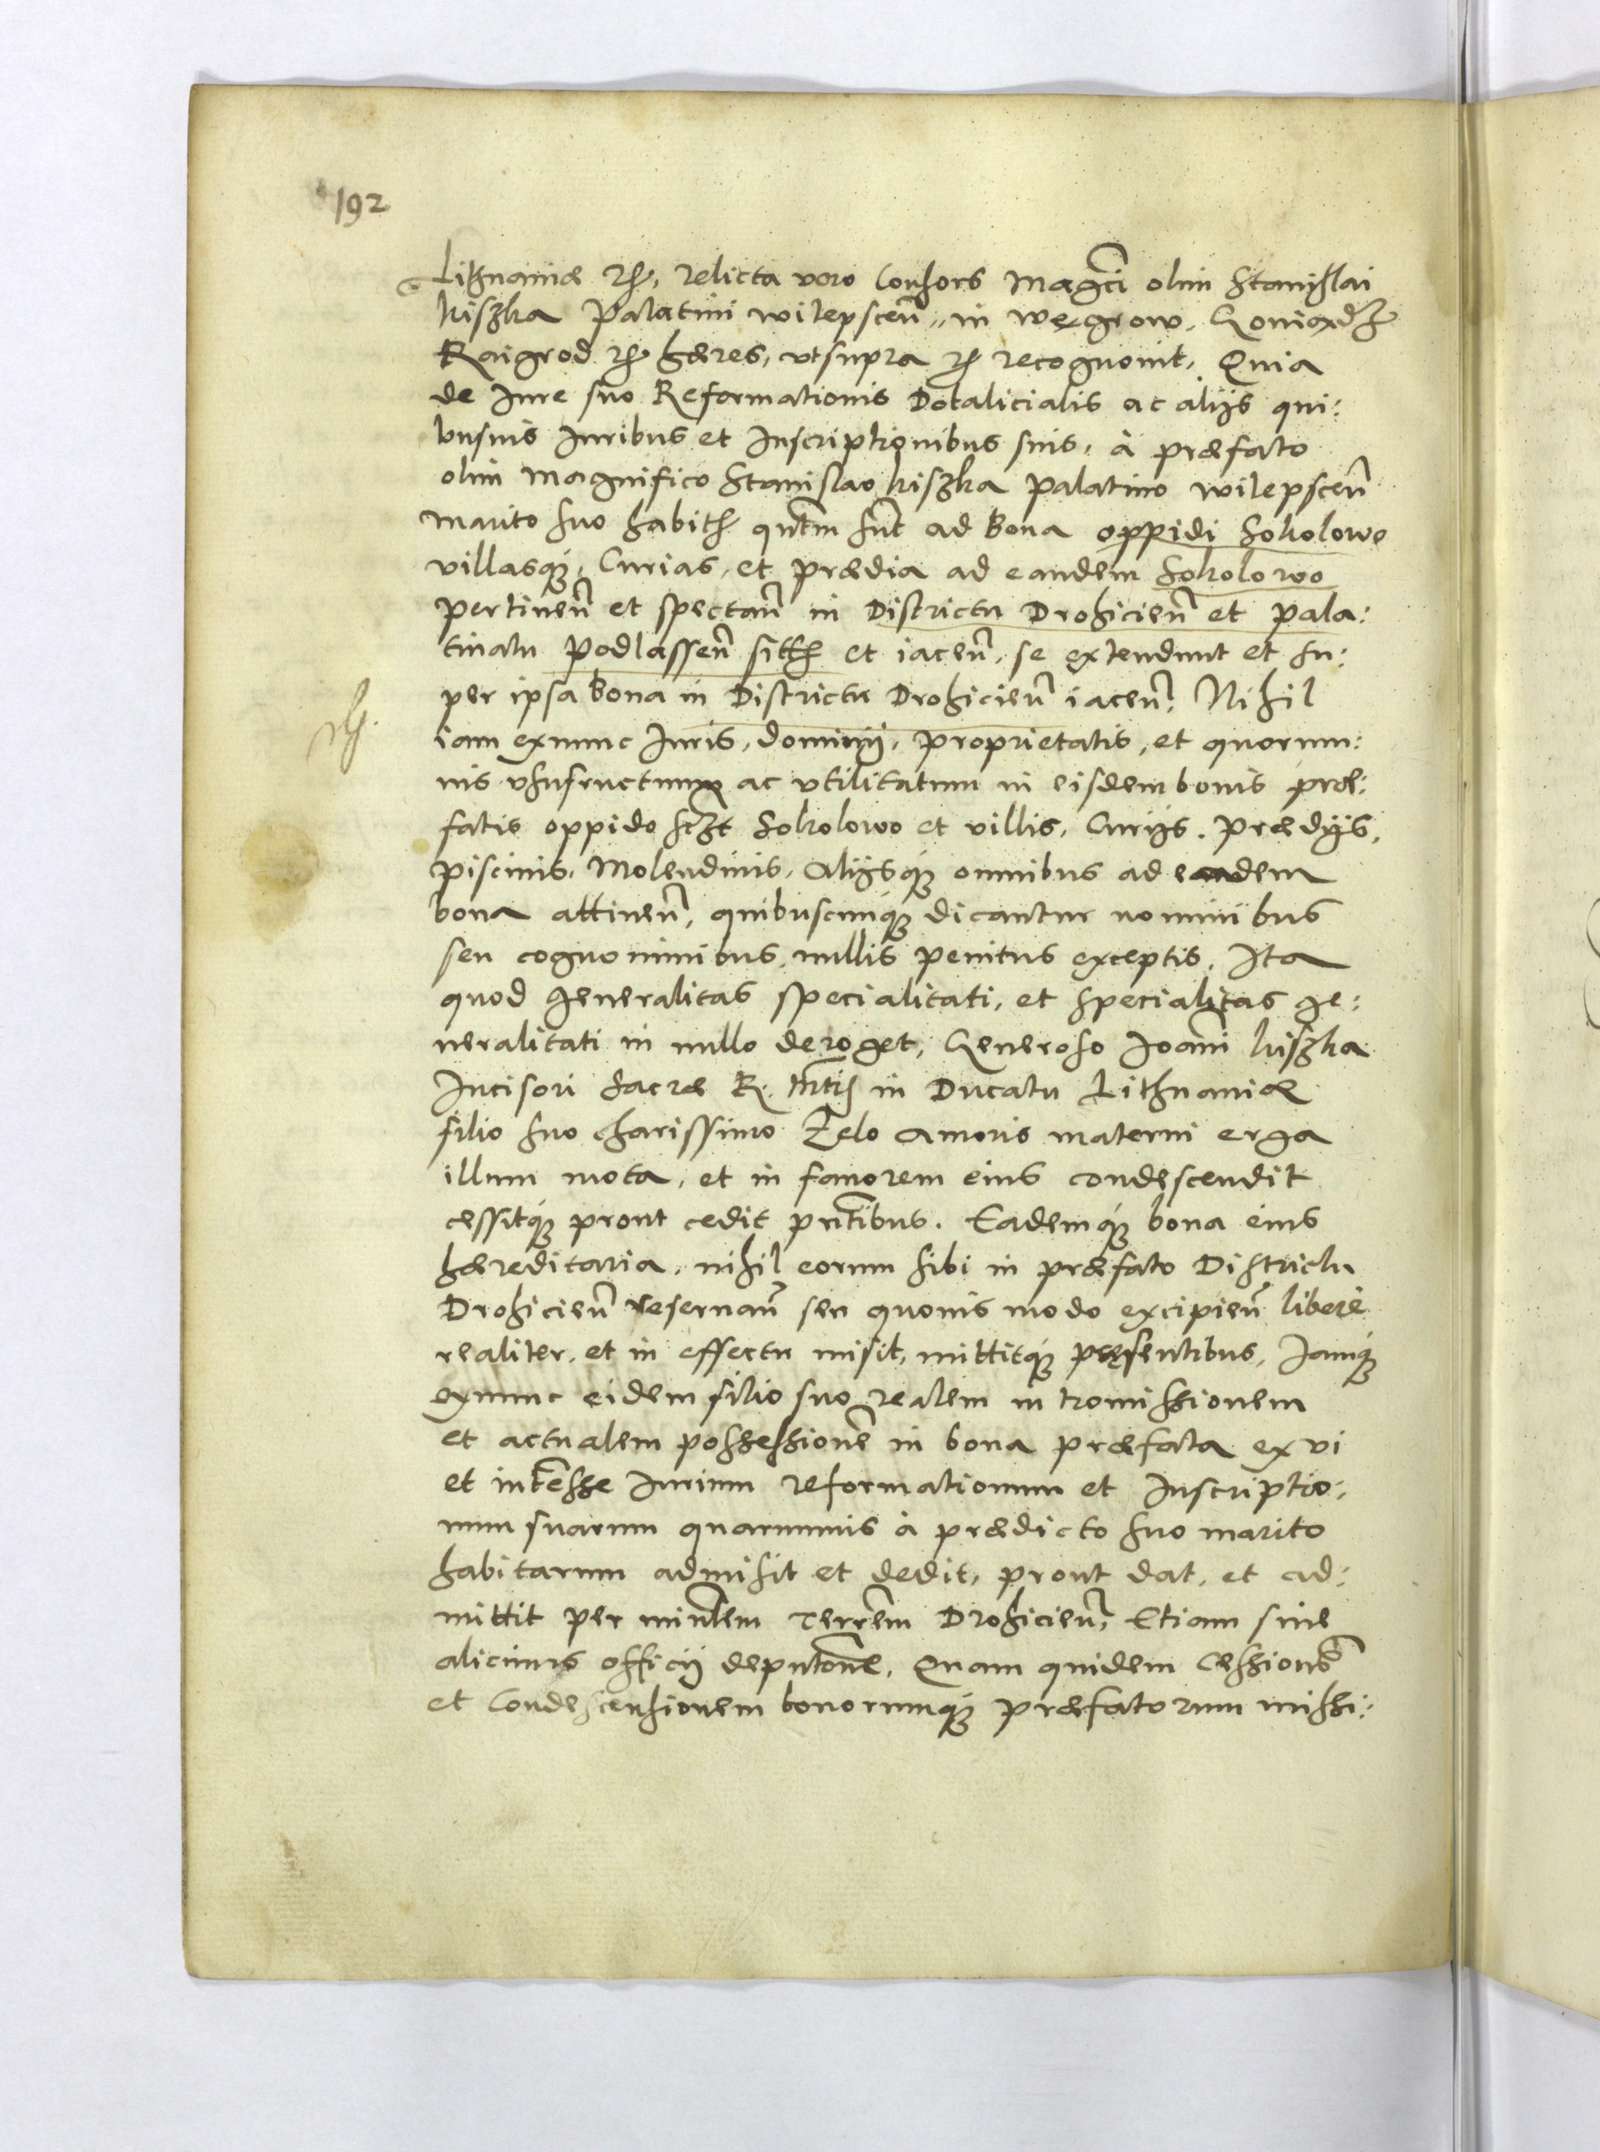 192
Lithuaniæ etc. relicta vero Consors Magci olim Stanislai
kiszka Palatini witepscen in Wegrow,
Raigrod etc hæres, vt supra etc recognouit, Quia
de Iure suo Reformationis Dotalicialis ac alijs qui:
busuis Iuribus et Inscriptionibus suis, à præfato
olim magnifico Stanislao kiszka Palatino witepscen
marito suo habith qntm snt ad bona oppidi Sokolowo
villasq, Curias, et prædia ad eandem Sokolowo
pertinen et spectan in Districtu Drohicien et Pala:
tinatu Podlassen sitth et iacen, se extendunt et su:
per ipsa bona in Districtu Drohicien iacen, Nihil
iam exnunc Iuris, dominij, proprietatis, et quorum:
uis vsufructuum ac vtilitatum in eisdem bonis præ:
fatis oppido sczt Sokolowo et villis, Curijs, Prædijs,
piscinis, Molendinis, Alijsq omnibus ad eadem
bona attinen, quibuscunq dicantur nominibus
seu cognominibus, nullis penitus exceptis, Ita
quod generalitas specialitati, et specialitas ge:
neralitati in nullo deroget, Generoso Joanni kiszka
Incisori Sacræ R. Mttis in Ducatu Lithuaniæ
filio suo charissimo Zelo Amoris materni erga
illum mota, et in fauorem eius condescendit
cessitq prout cedit pntibus. Eademq bona eius
hæreditaria, nihil eorum sibi in præfato Districtu
Drohicien reseruan seu quouis modo excipien liberè
realiter, et in effectu misit, mittitq præsentibus, Iamq
exnunc eidem filio suo realem intromissionem
et actualem possessionem in bona præfata ex vi
et intersse Iurium reformationum et Inscriptio:
num suarum quarumuis à prædicto suo marito
habitarum admisit et dedit, prout dat, et ad:
mittit per mintlem Terrem Drohicien, Etiam sine
alicuius officij deputone, Quam quidem Cessionem
et Condescensionem bonorumq præfatorum missi: